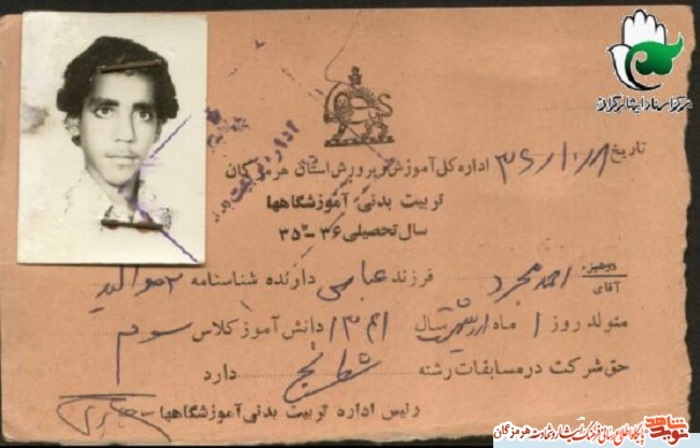 مرکز اسناد ایثارگران
تاریخ
اداره کل آموزش و پرورش استان هرمزگان
تربیت بدنی آموزشگاهها
سال تحصیلی ۳۶-۳۵
دوشیزه
آقای احمد مجرد فرزند عباس دارنده شناسنامه ۲ موالید
متولد روز ۱ ماه اردیبهشت سال دانش آموز کلاس سوم
حق شرکت در مسابقات رشته شطرنج دارد
رئیس اداره تربیت بدنی آموزشگاهها
نوید شاهد
پایگاه اطلاع رسانی فرهنگ ایثار و شهادت هرمزگان